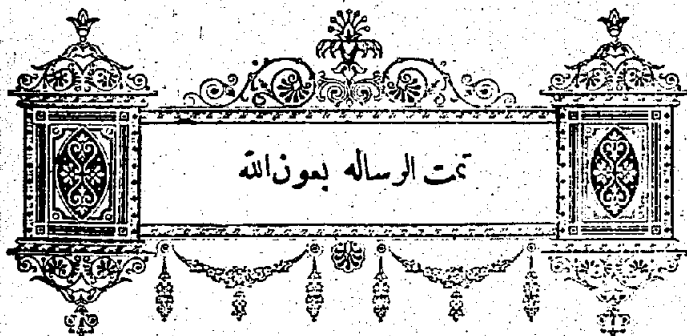 تمت الرساله بعون الله